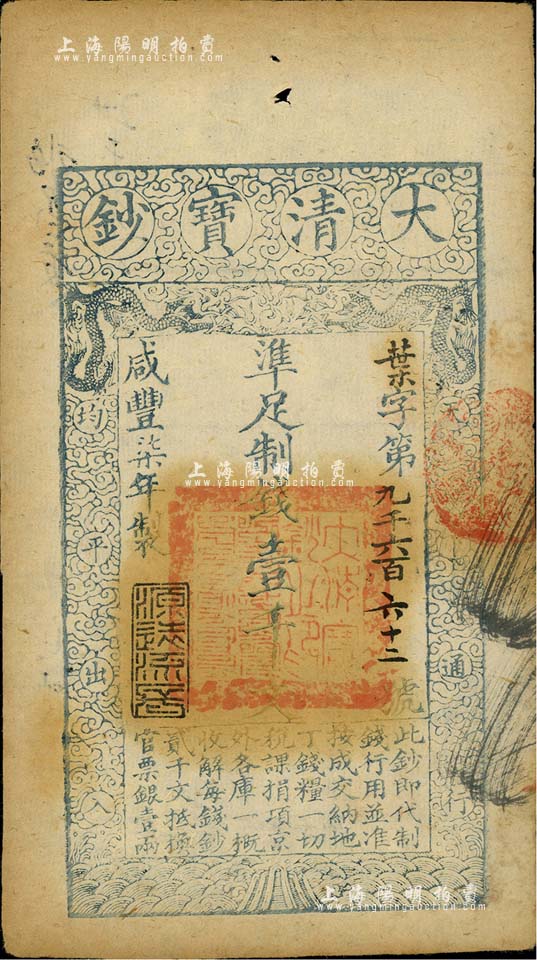 上海陽明拍賣
www.yangmingauction.com
大清寶鈔
葉字第九千六百六十二號
準足制錢壹千文
咸豐柒年製
天下通行
均平出入
源遠流長
上海陽明拍賣
www.yangmingauction.com
此鈔即代制
錢行用並准
按成交納地
丁錢糧一切
稅課捐項京
外各庫一概
收解每錢鈔
貳千文抵換
官票銀壹兩
上海陽明拍賣
www.yangmingauction.com